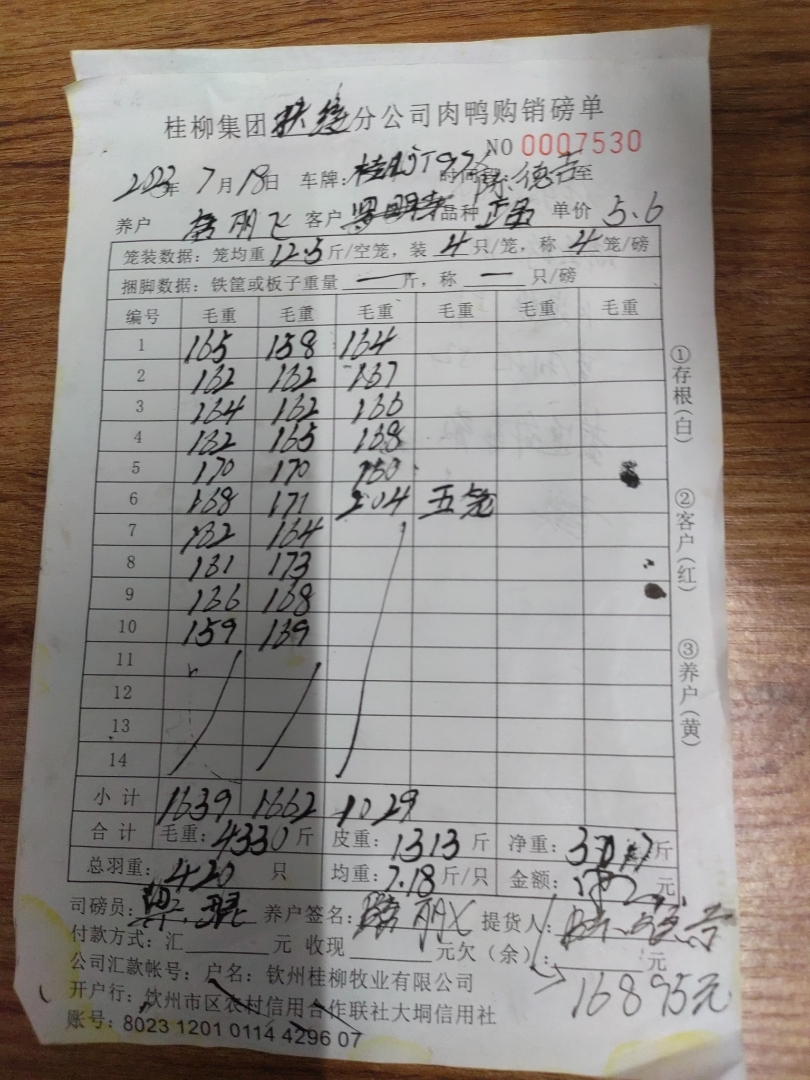 桂柳集团扶绥分公司肉鸭购销磅单
NO 0007530
2023年 7月18日 车牌: 时间 至
陈德吉
养户 明飞 客户 品种 单价 5.6
笼装数据:笼均重12.5斤/空笼,装4只/笼,称4笼/磅
捆脚数据:铁筐或板子重量 一 斤,称 一 只/磅
编号 毛重 毛重 毛重 毛重 毛重 毛重
1 165 158 164
2 162 162 167
3 164 162 166
4 162 165 168
5 170 170
6 168 171 204 五笼
7 164
8 161 173
9 166 168
10 159 169
11
12
13
14
小计 1639 1662 1029
合计 毛重:4330斤 皮重:1313斤 净重:3017斤
总羽重:420 只 均重:7.18斤/只 金额: 元
①存根(白) ②客户(红) ③养户(黄)
司磅员: 养户签名: 明飞 提货人:陈德吉
付款方式:汇 元 收现 元欠(余): 元
16895元
公司汇款帐号:户名:钦州桂柳牧业有限公司
开户行:钦州市区农村信用合作联社大垌信用社
账号:8023 1201 0114 4296 07